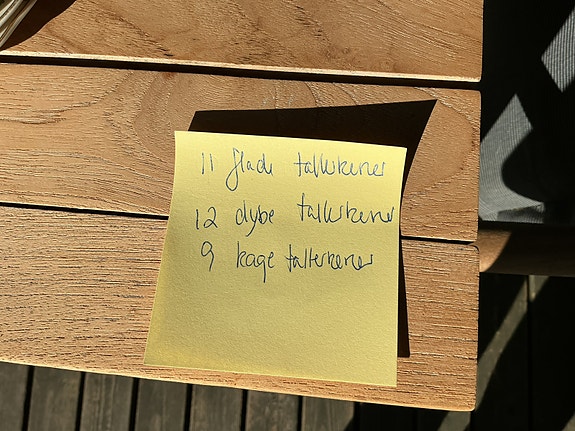 11 flade tallerkener
12 dybe tallerkener
9 kage tallerkener